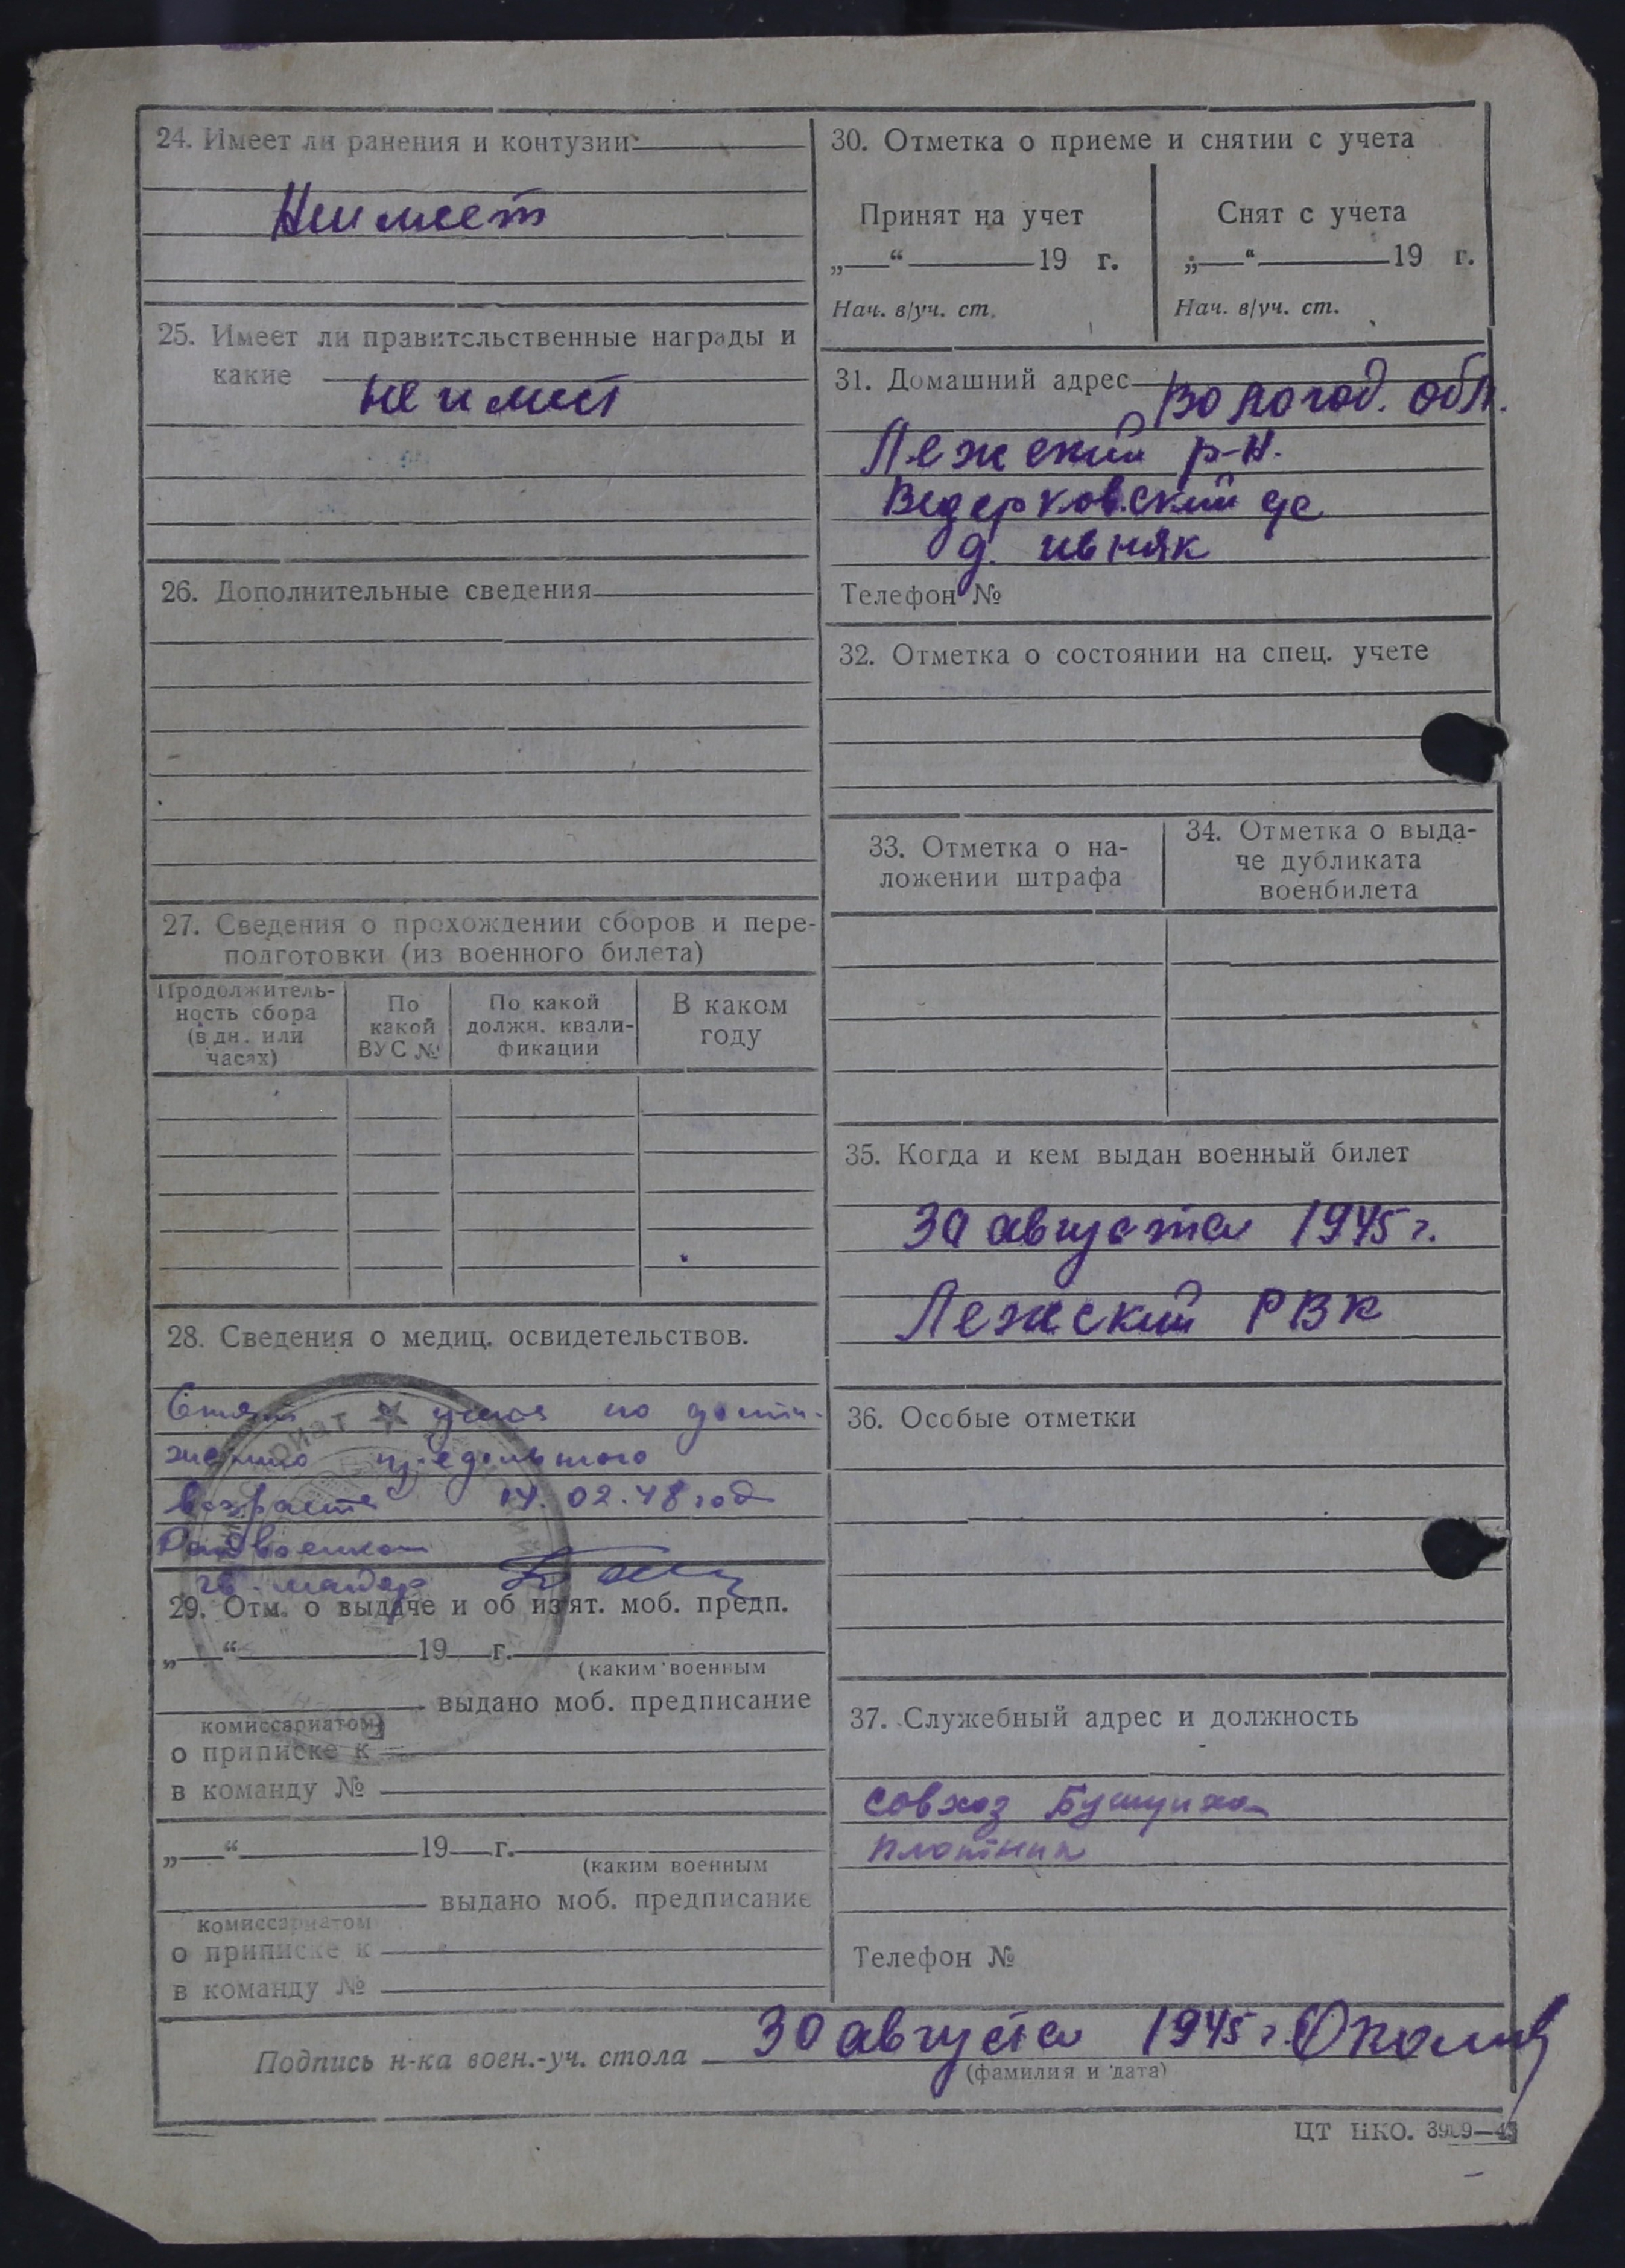 24. Имеет ли ранения и контузии
Не имеет
25. Имеет ли правительственные награды и
какие
не имеет
26. Дополнительные сведения
27. Сведения о прохождении сборов и пере-
подготовки (из военного билета)
Продолжитель-
ность сбора
(в дн. или
часах)
По
какой
ВУС №
По какой
должн. квали-
фикации
В каком
году
28. Сведения о медиц. освидетельствов.
Снят с учета по дости-
жению предельного
возраста 14.02.48 год
Райвоенком
гв. майор
29. Отм. о выдаче и об из'ят. моб. предп.
„ “ 19 г.
(каким военным
выдано моб. предписание
комиссариатом)
о приписке к
в команду №
„ “ 19 г.
(каким военным
выдано моб. предписание
комиссариатом
о приписке к
в команду №
30. Отметка о приеме и снятии с учета
Принят на учет
„ “ 19 г.
Нач. в/уч. ст.
Снят с учета
„ “ 19 г.
Нач. в/уч. ст.
31. Домашний адрес Вологод. обл.
Лежский р-н.
Ведерковский с/с
д. ивняк
Телефон №
32. Отметка о состоянии на спец. учете
33. Отметка о на-
ложении штрафа
34. Отметка о выда-
че дубликата
военбилета
35. Когда и кем выдан военный билет
30 августа 1945 г.
Лежский РВК
36. Особые отметки
37. Служебный адрес и должность
совхоз Бушуиха
плотник
Телефон №
Подпись н-ка воен.-уч. стола 30 августа 1945 г.
(фамилия и дата)
ЦТ НКО.